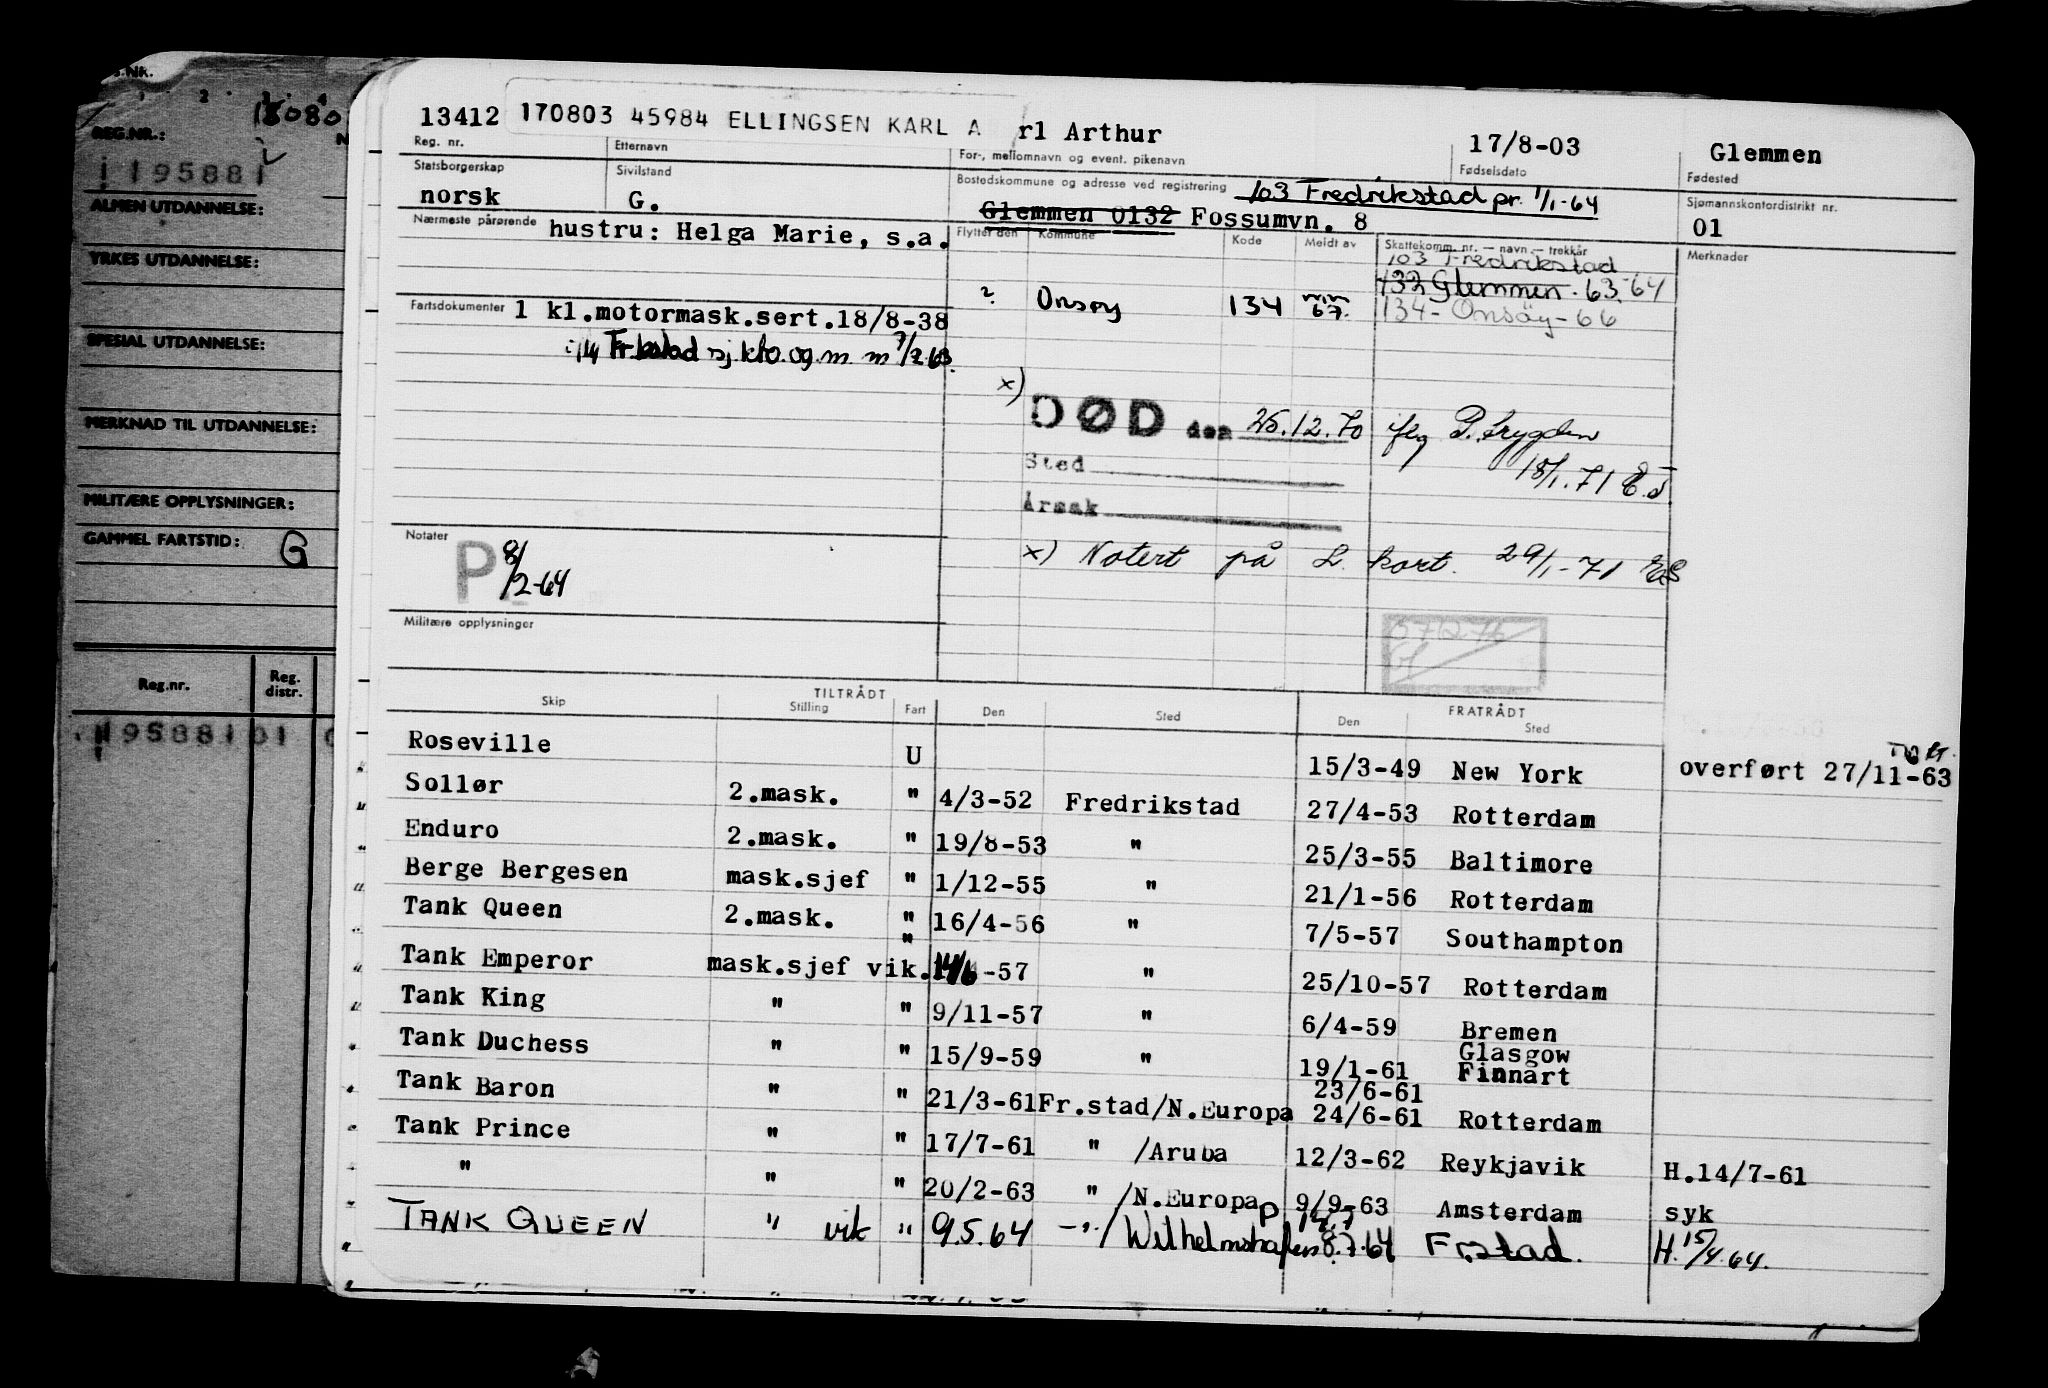 G.NR.
1 2 3 4
18080
REG.NR.:
1195881
ALMEN UTDANNELSE:
YRKES UTDANNELSE:
SPESIAL UTDANNELSE:
MERKNAD TIL UTDANNELSE:
MILITÆRE OPPLYSNINGER:
GAMMEL FARTSTID: G
Reg.nr. Reg. distr.
1195881 01
13412 170803 45984 ELLINGSEN KARL A rl Arthur 17/8-03 Glemmen
Reg. nr. Etternavn For-, mellomnavn og event. pikenavn Fødselsdato Fødested
Statsborgerskap Sivilstand Bostedskommune og adresse ved registrering 103 Fredrikstad pr. 1/1-64 Sjømannskontordistrikt nr.
norsk G. Glemmen 0132 Fossumvn. 8 01
Nærmeste pårørende hustru: Helga Marie, s.a. Flyttet den Kommune Kode Meldt av Skattekomm. nr. — navn — trekkår Merknader
103 Fredrikstad
132 Glemmen-63-64
? Onsøy 134 mm 67. 134- Onsøy-66
Fartsdokumenter 1 kl.motormask.sert.18/8-38
Fr.kstad sj.kto.og m m 7/2 63.
x) DØD den 25.12.70 iflg P. Trygden
18/1.71 E.J.
Sted
Årsak
Notater P 8/2-64
x) Notert på L. kort. 29/1-71 EØS
Militære opplysninger
TILTRÅDT FRATRÅDT
Skip Stilling Fart Den Sted Den Sted
Roseville U 15/3-49 New York overført 27/11-63
Sollør 2.mask. " 4/3-52 Fredrikstad 27/4-53 Rotterdam
Enduro 2.mask. " 19/8-53 " 25/3-55 Baltimore
Berge Bergesen mask.sjef " 1/12-55 " 21/1-56 Rotterdam
Tank Queen 2.mask. " 16/4-56 " 7/5-57 Southampton
Tank Emperor mask.sjef vik. " 14/6-57 " 25/10-57 Rotterdam
Tank King " " 9/11-57 " 6/4-59 Bremen
Glasgow
Tank Duchess " " 15/9-59 " 19/1-61 Finnart
23/6-61
Tank Baron " " 21/3-61 Fr.stad/N.Europa 24/6-61 Rotterdam
Tank Prince " " 17/7-61 " /Aruba 12/3-62 Reykjavik H.14/7-61
" " " 20/2-63 " /N.Europa p 9/9-63 Amsterdam syk
TANK QUEEN " vik " 9.5.64 -"-/Wilhelmshafen 8.7.64 Fr.stad. H.15/4.64.